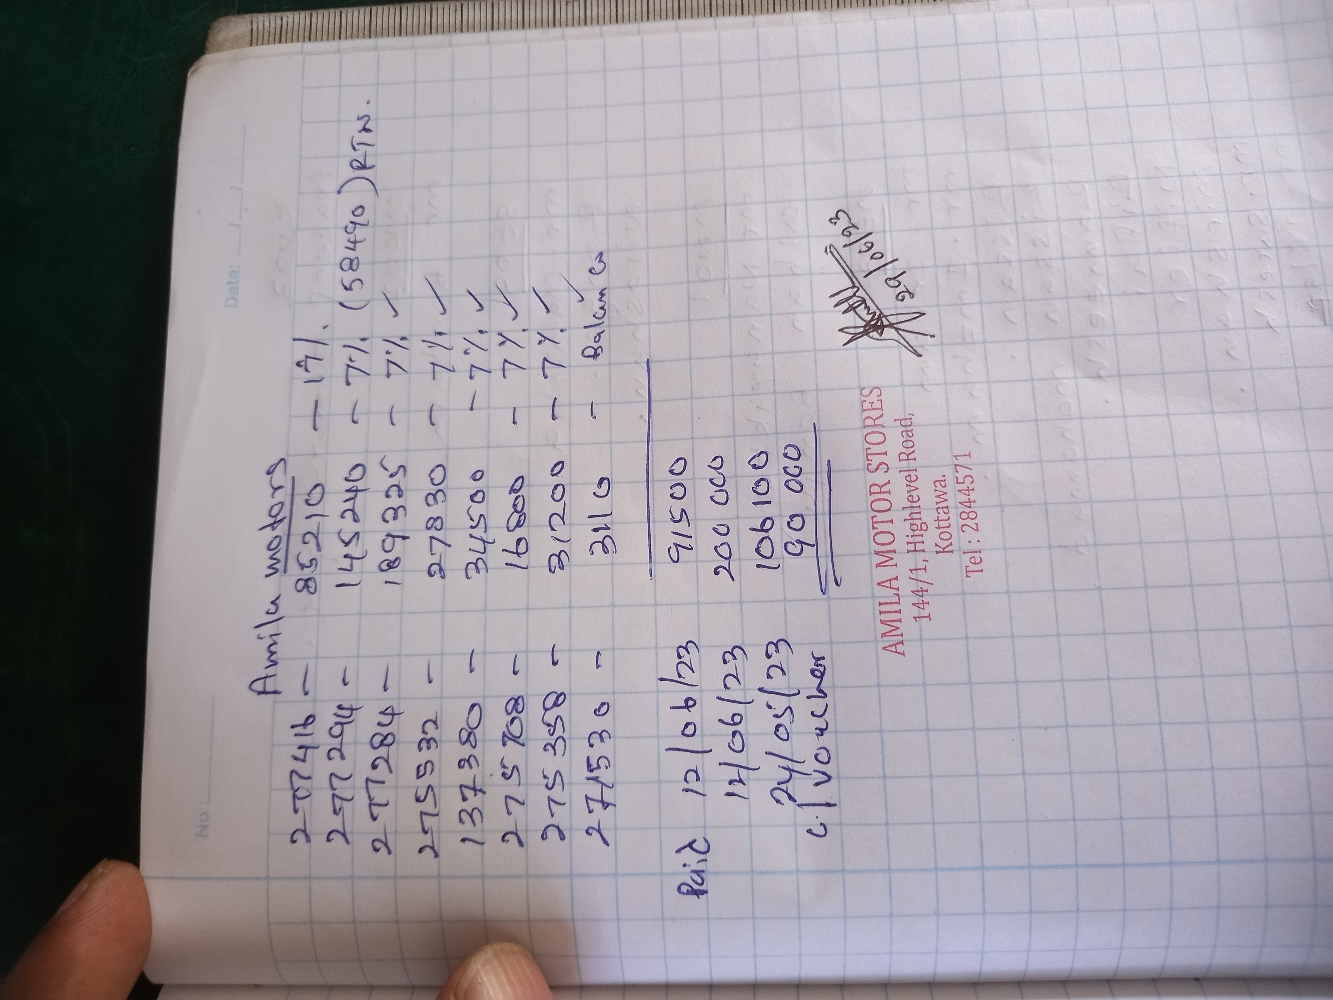 No :
Date: / /
Amila motors
277416 – 85210 – 17%
277294 – 145240 – 7% (58490) RTN.
277284 – 189325 – 7% ✓
275532 – 27830 – 7% ✓
137380 – 34500 – 7% ✓
275708 – 16800 – 7% ✓
275358 – 31200 – 7% ✓
271530 – 3110 – Balance
Paid 12/06/23 91500
12/06/23 200 000
24/05/23 106100
C/Voucher 90 000
29/06/23
AMILA MOTOR STORES
144/1, Highlevel Road,
Kottawa.
Tel : 2844571